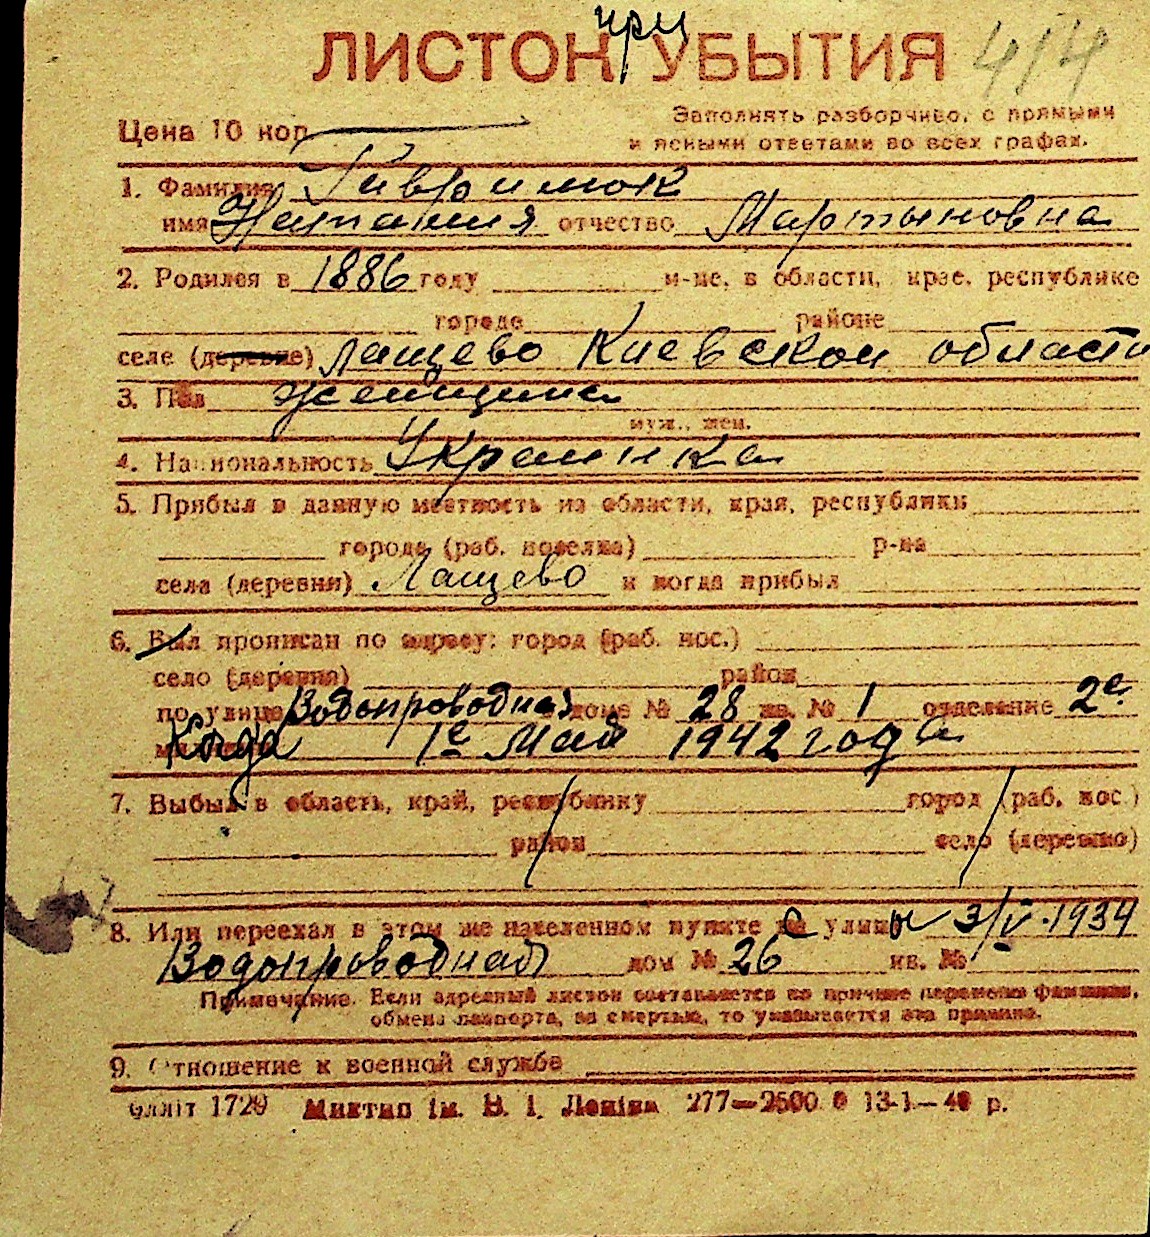 при
ЛИСТОК УБЫТИЯ 414
Цена 10 коп.
Заполнять разборчиво, с прямыми
и ясными ответами во всех графах.
1. Фамилия Гаврилюк
имя Наталия отчество Мартыновна
2. Родился в 1886 году м-це, в области, крае, республике
городе районе
селе (деревне) Лащево Киевской области
3. Пол женщина
муж., жен.
4. Национальность Украинка
5. Прибыл в данную местность из области, края, республики
города (раб. поселка) р-на
села (деревни) Лащево и когда прибыл
6. Был прописан по адресу: город (раб. пос.)
село (деревня) район
по улице Водопроводная доме № 28 кв. № 1 отделение 2е
Когда 1е Мая 1942 года
7. Выбыл в область, край, республику город (раб. пос.)
район село (деревню)
8. Или переехал в этом же населенном пункте с улицы 3/IV-1934
Водопроводная дом № 26 кв. №
Примечание. Если адресный листок составляется по причине перемены фамилии,
обмена паспорта, за смертью, то указывается эта причина.
9. Отношение к военной службе
1729 Миктип ім. В. І. Леніна 277—2500 13-1—40 р.